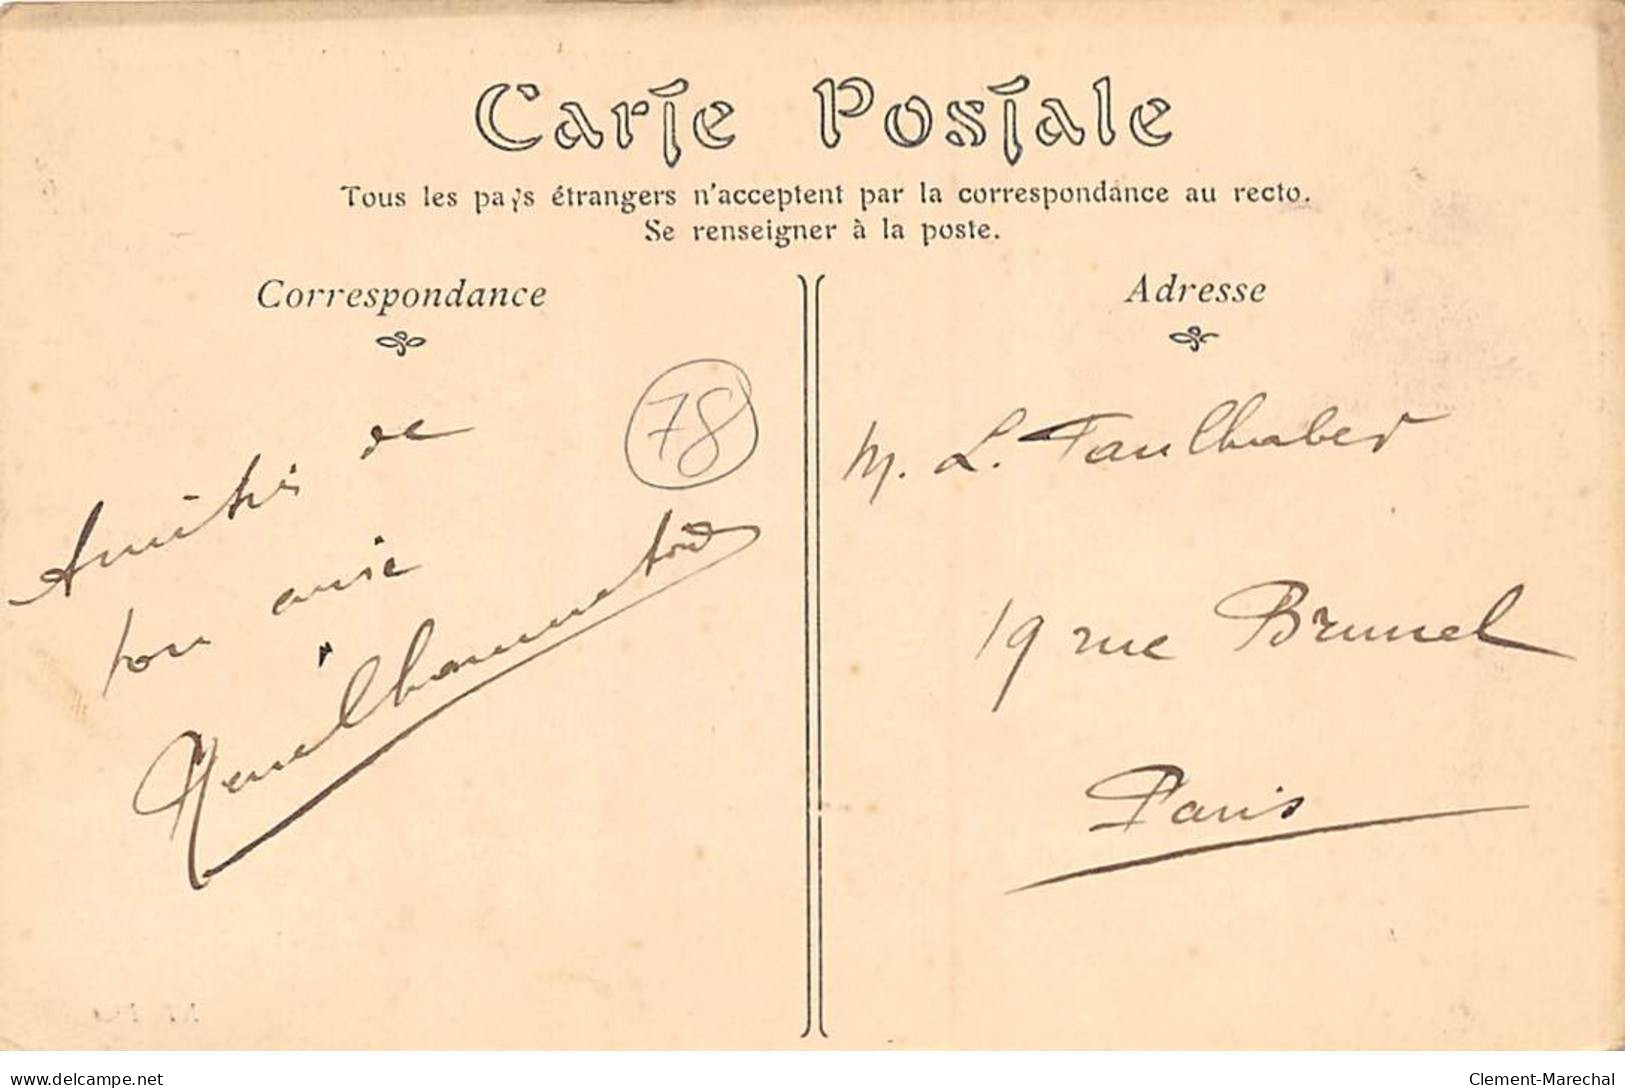 Carte Postale
Tous les pays étrangers n'acceptent par la correspondance au recto.
Se renseigner à la poste.
Correspondance
Adresse
78
Amitiés de
ton amie
M. L. Faulhaber
19 rue Brunel
Paris
delcampe.net
Clement-Marechal